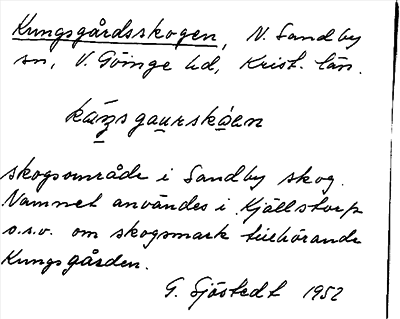 Kungsgårdsskogen, N. Sandby
sn, V. Göinge hd, Krist. län.
skogsområde i Sandby skog.
Namnet användes i Kjällstorp
o.s.v. om skogsmark tillhörande
Kungsgården.
G. Sjöstedt 1952